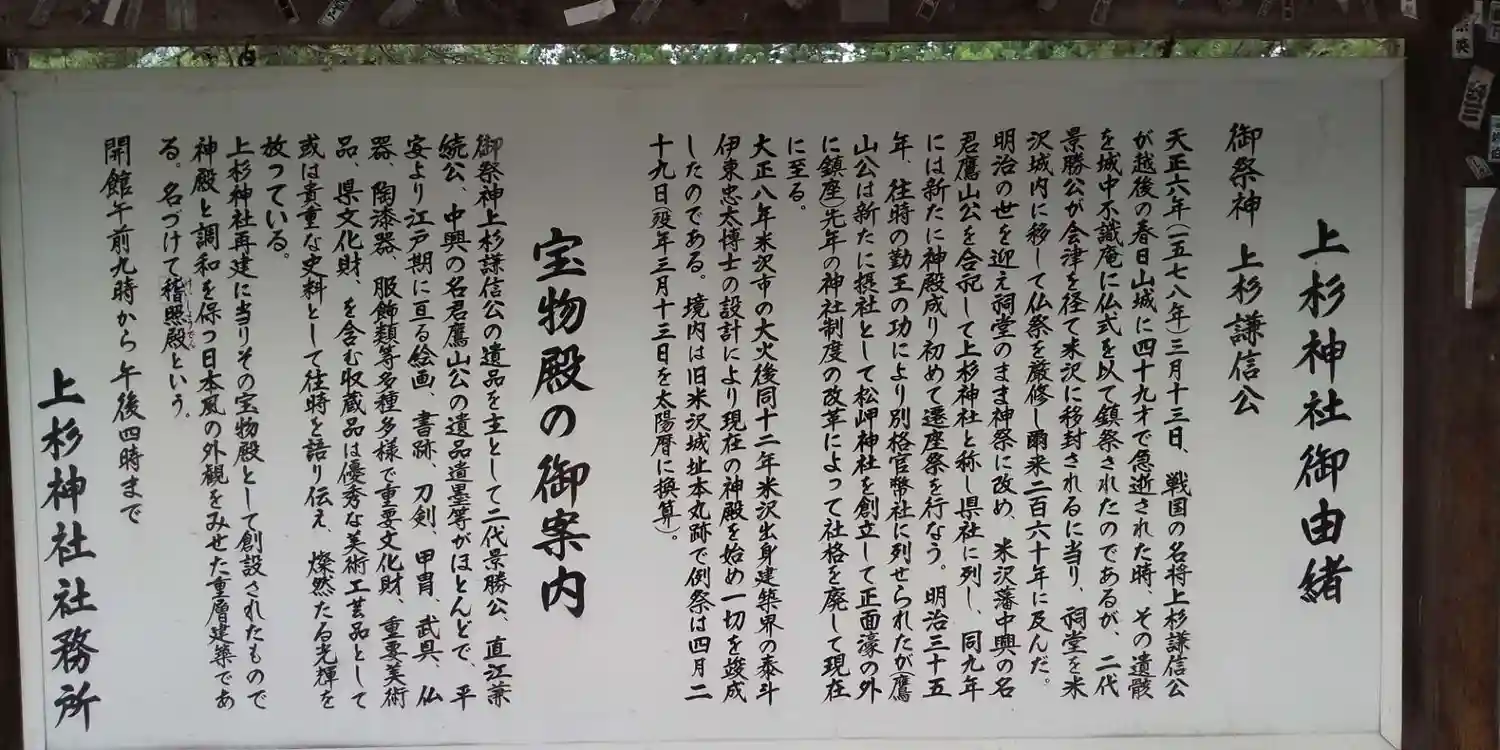 上杉神社御由緒
御祭神 上杉謙信公
天正六年(一五七八年)三月十三日、戦国の名将上杉謙信公
が越後の春日山城に四十九才で急逝された時、その遺骸
を城中不識庵に仏式を以て鎮祭されたのであるが、二代
景勝公が会津を径て米沢に移封されるに当り、祠堂を米
沢城内に移して仏祭を厳修し爾来二百六十年に及んだ。
明治の世を迎え祠堂のまま神祭に改め、米沢藩中興の名
君鷹山公を合祀して上杉神社と称し県社に列し、同九年
には新たに神殿成り初めて遷座祭を行なう。明治三十五
年、往時の勤王の功により別格官幣社に列せられたが(鷹
山公は新たに摂社として松岬神社を創立して正面濠の外
に鎮座)先年の神社制度の改革によって社格を廃して現在
に至る。
大正八年米沢市の大火後同十二年米沢出身建築界の泰斗
伊東忠太博士の設計により現在の神殿を始め一切を竣成
したのである。境内は旧米沢城址本丸跡で例祭は四月二
十九日(歿年三月十三日を太陽暦に換算)。
宝物殿の御案内
御祭神上杉謙信公の遺品を主として二代景勝公、直江兼
続公、中興の名君鷹山公の遺品遺墨等がほとんどで、平
安より江戸期に亘る絵画、書跡、刀剣、甲冑、武具、仏
器、陶漆器、服飾類等多種多様で重要文化財、重要美術
品、県文化財、を含む収蔵品は優秀な美術工芸品として
或は貴重な史料として往時を語り伝え、燦然たる光輝を
放っている。
上杉神社再建に当りその宝物殿として創設されたもので
神殿と調和を保つ日本風の外観をみせた重層建築であ
る。名づけて稽照殿という。
開館午前九時から午後四時まで
上杉神社社務所